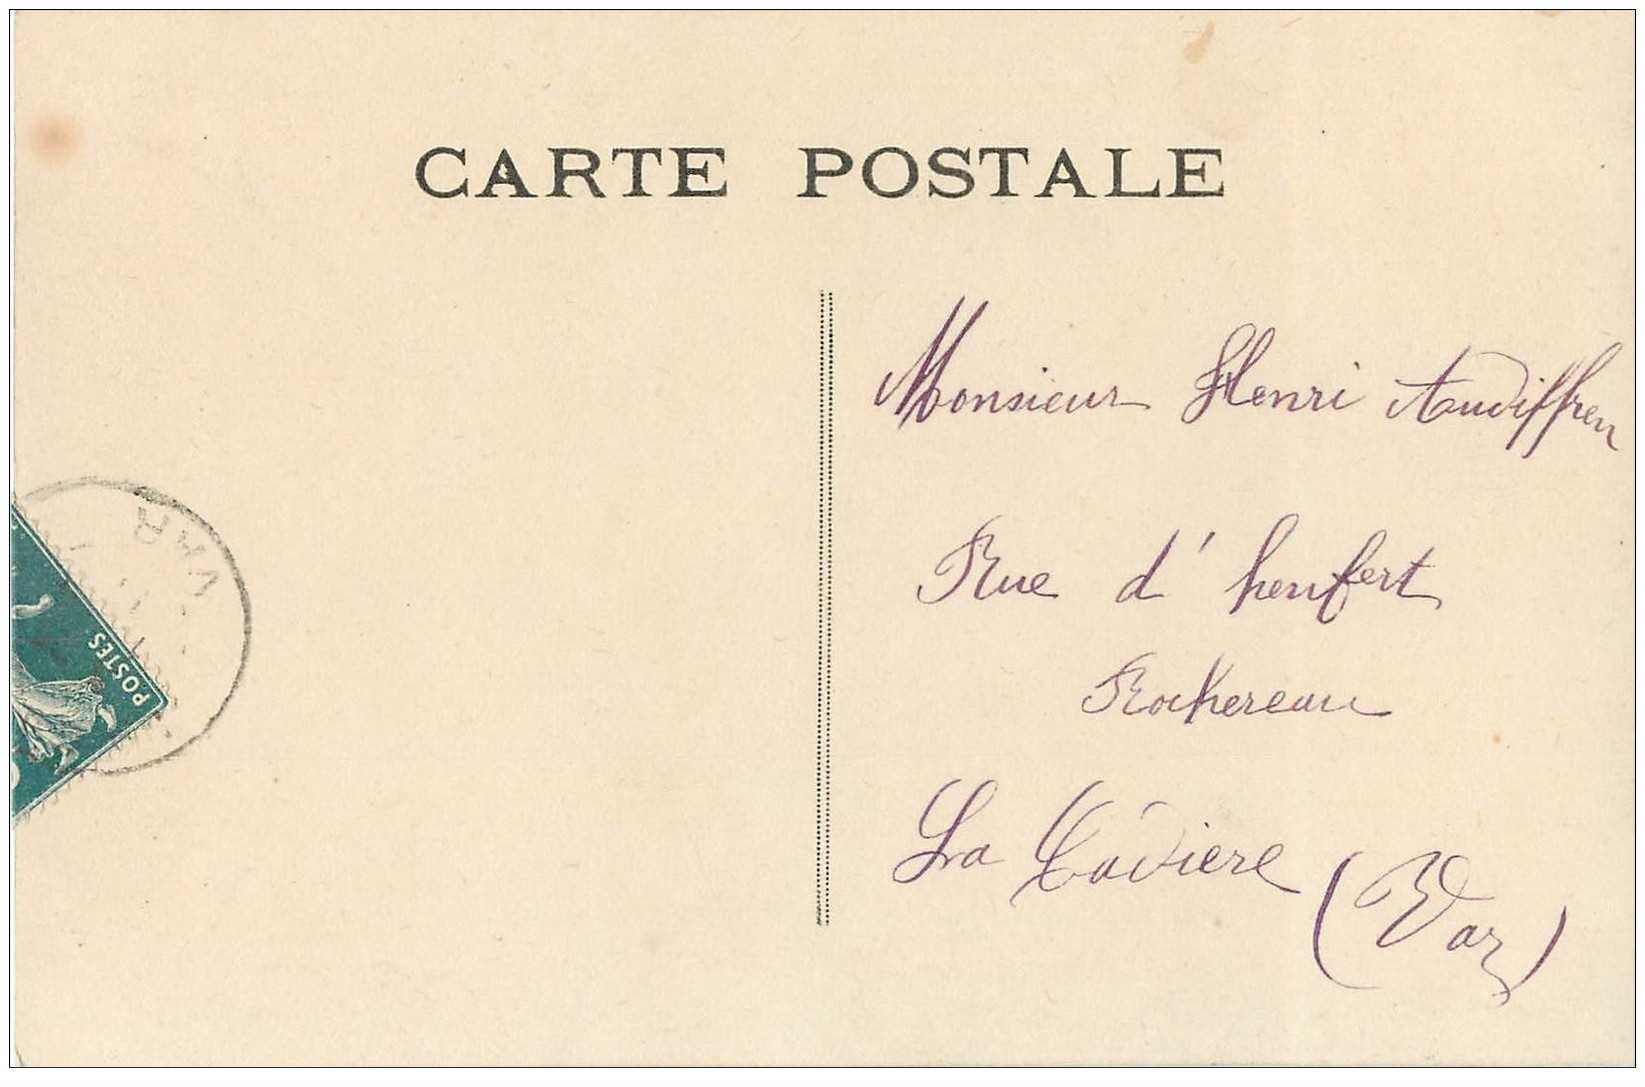 CARTE POSTALE
Monsieur Henri Audiffren
Rue d'henfert
Rochereau
La
(Var)
VAR
POSTES